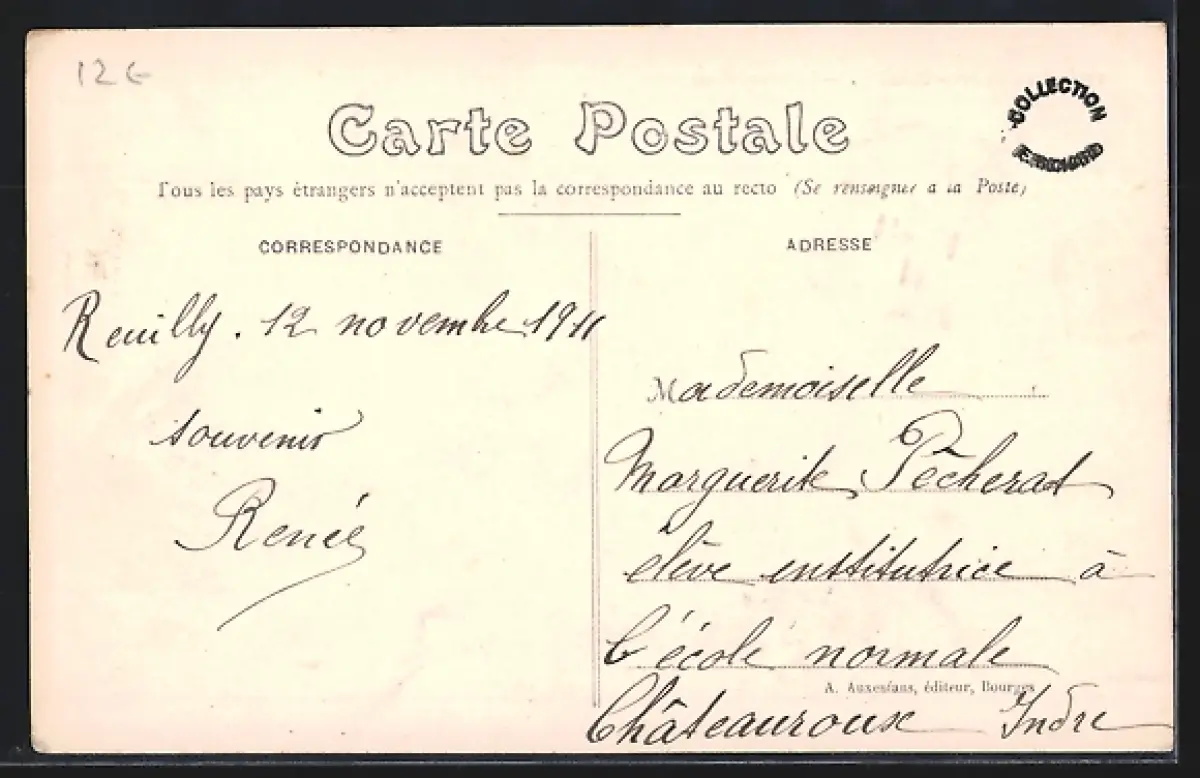 12 €
Carte Postale
COLLECTION
Tous les pays étrangers n'acceptent pas la correspondance au recto (Se renseigner a la Poste)
CORRESPONDANCE
ADRESSE
Reuilly. 12 novembre 1911
souvenir
Renée
Mademoiselle
Marguerite Pêcherat
élève institutrice à
l'école normale
A. Auxenfans, éditeur, Bourges
Châteauroux Indre